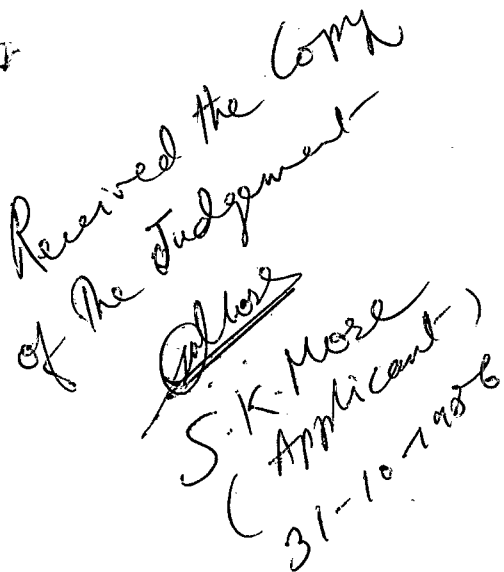 Received the Copy
of The Judgement
S. K. More
(Applicant)
31-10-1986